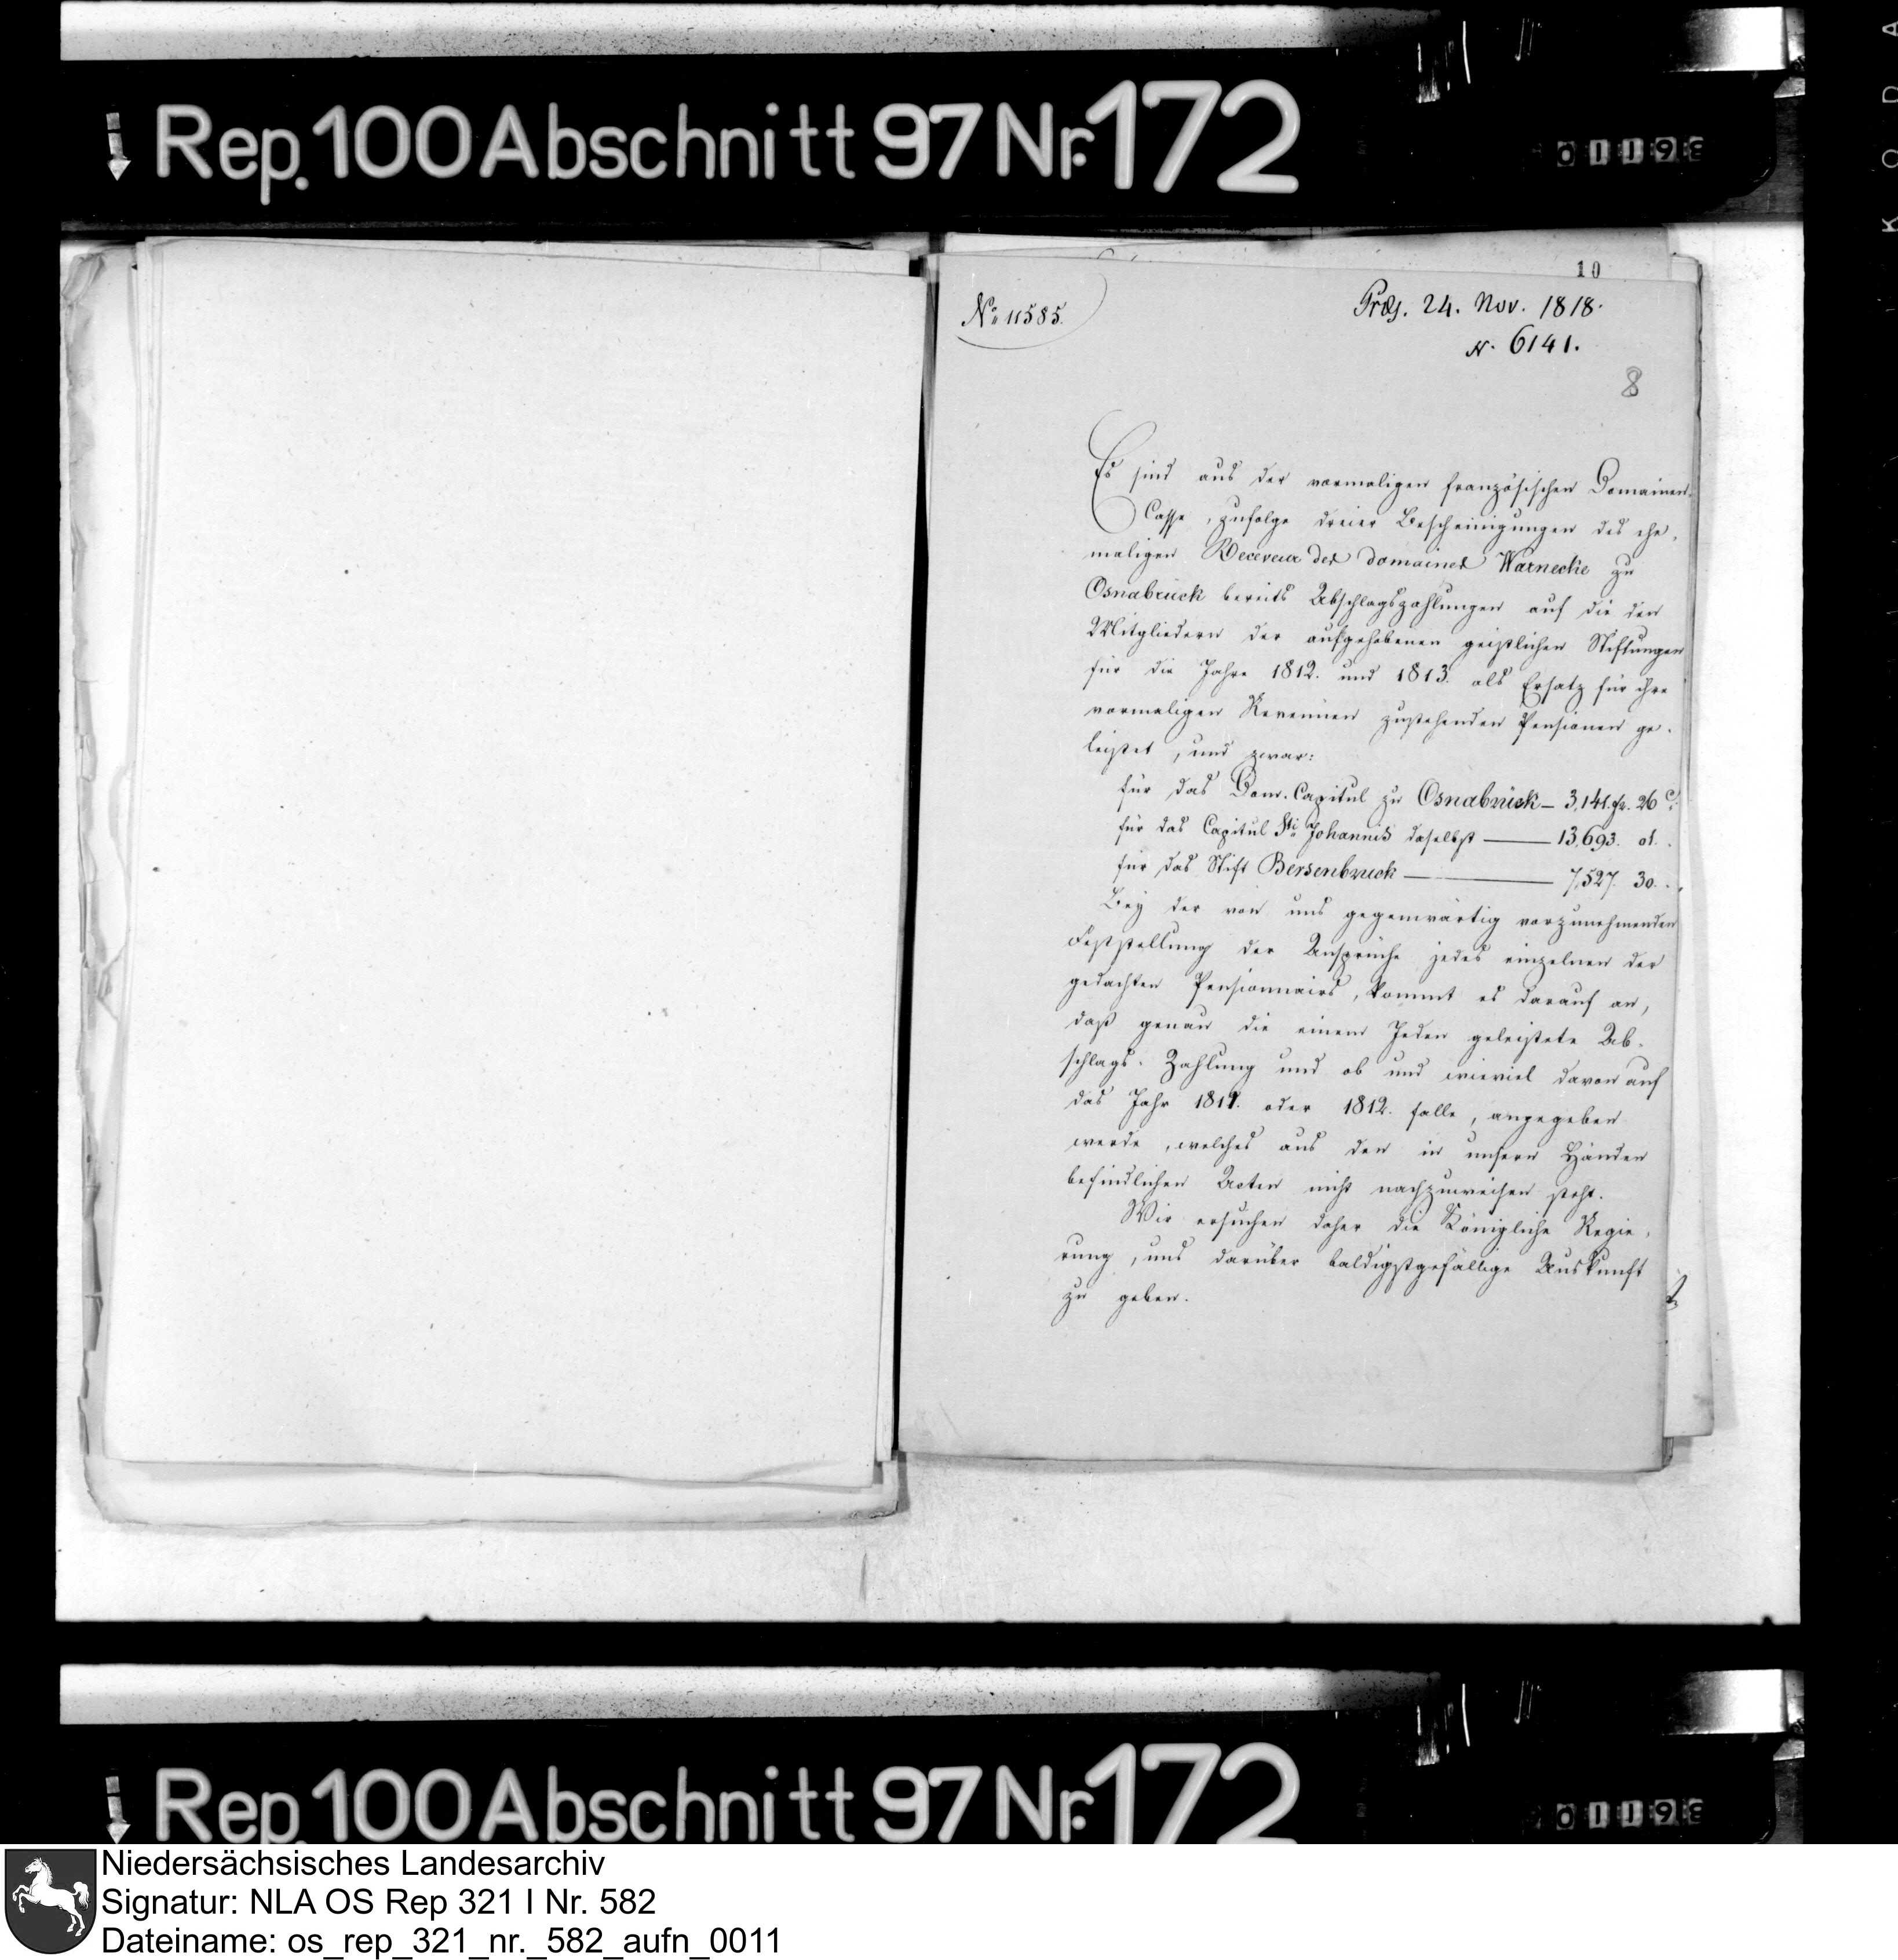 Rep. 100 Abschnitt 97 Nr. 172
01193
KODA
10
No 11585.
Präs. 24. Nov. 1818.
N. 6141.
8
Es sind aus der vormaligen französischen Domainen-
Casse, zufolge dreier Bescheinigungen des ehe-
maligen Receveur des domaines Warnecke zu
Osnabrück bereits Abschlagszahlungen auf die den
Mitgliedern der aufgehobenen geistlichen Stiftungen
für die Jahre 1812. und 1813. als Ersatz für ihre
vormaligen Revenüen zustehenden Pensionen ge-
leistet, und zwar:
für das Dom-Capitul zu Osnabrück — 3,141. fr. 26 C.
für das Capitul Sti Johannis daselbst — 13,693. 01. .
für das Stift Bersenbrück — 7,527. 30. .
Bey der von uns gegenwärtig vorzunehmenden
Feststellung der Ansprüche jedes einzelnen der
gedachten Pensionnairs, kommt es darauf an,
daß genau die einem Jeden geleistete Ab-
schlags-Zahlung und ob und wieviel davon auf
das Jahr 1811. oder 1812. falle, angegeben
werde, welches aus den in unsern Händen
befindlichen Acten nicht nachzuweisen steht.
Wir ersuchen daher die Königliche Regie-
rung, uns darüber baldigstgefällige Auskunft
zu geben.
Rep. 100 Abschnitt 97 Nr. 172
01193
Niedersächsisches Landesarchiv
Signatur: NLA OS Rep 321 I Nr. 582
Dateiname: os_rep_321_nr._582_aufn_0011